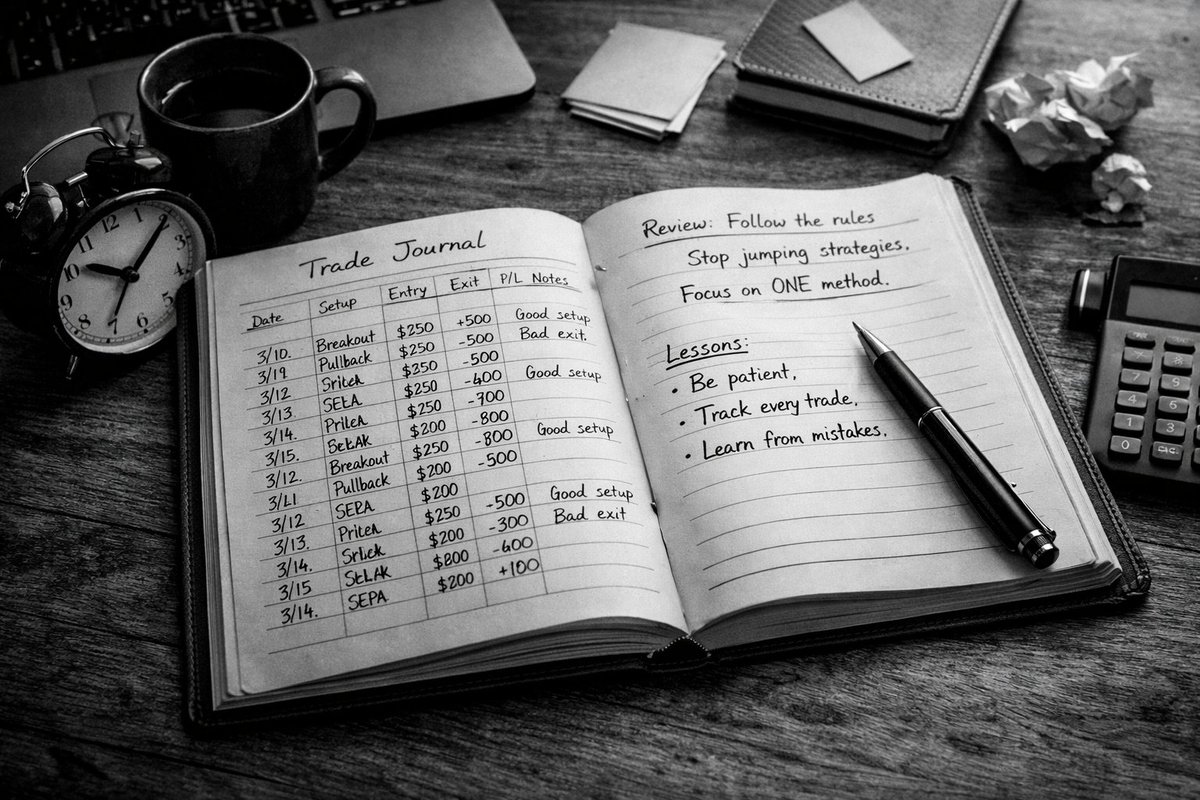 Trade Journal
Date Setup Entry Exit P/L Notes
3/10. Breakout $250 +500 Good setup
3/19 Pullback $250 -500 Bad exit.
3/12 $350 -500
3/13 SELA $250 -400 Good setup
3/14. $250 -700
3/15. $200 -800
3/12. Breakout $250 -800 Good setup
Pullback $200 -500
3/12 SEPA $200
3/13. $250 -500 Good setup
3/14. $200 -300 Bad exit
3/15 $800 -400
3/14. SEPA $200 +100
Review: Follow the rules
Stop jumping strategies.
Focus on ONE method.
Lessons:
• Be patient,
• Track every trade.
• Learn from mistakes.